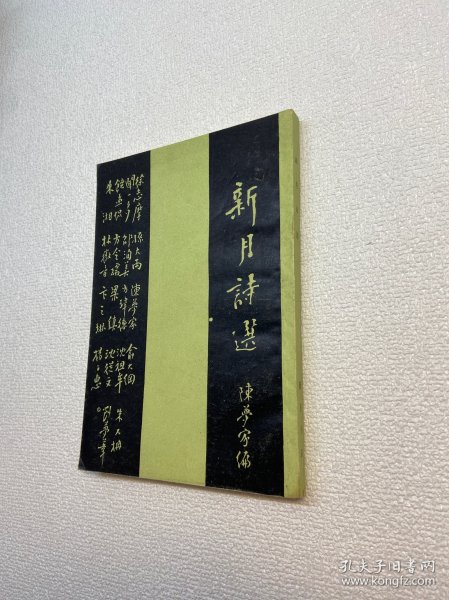 新月詩選
陳夢家編
徐志摩 孫大雨 陳夢家 俞大綱 朱大枏
聞一多 邵洵美 方瑋德 沈祖牟 劉夢葦
饒孟侃 方令孺 梁鎮 沈從文
朱湘 林徽音 卞之琳 楊子惠
孔夫子旧书网
www.kongfz.com